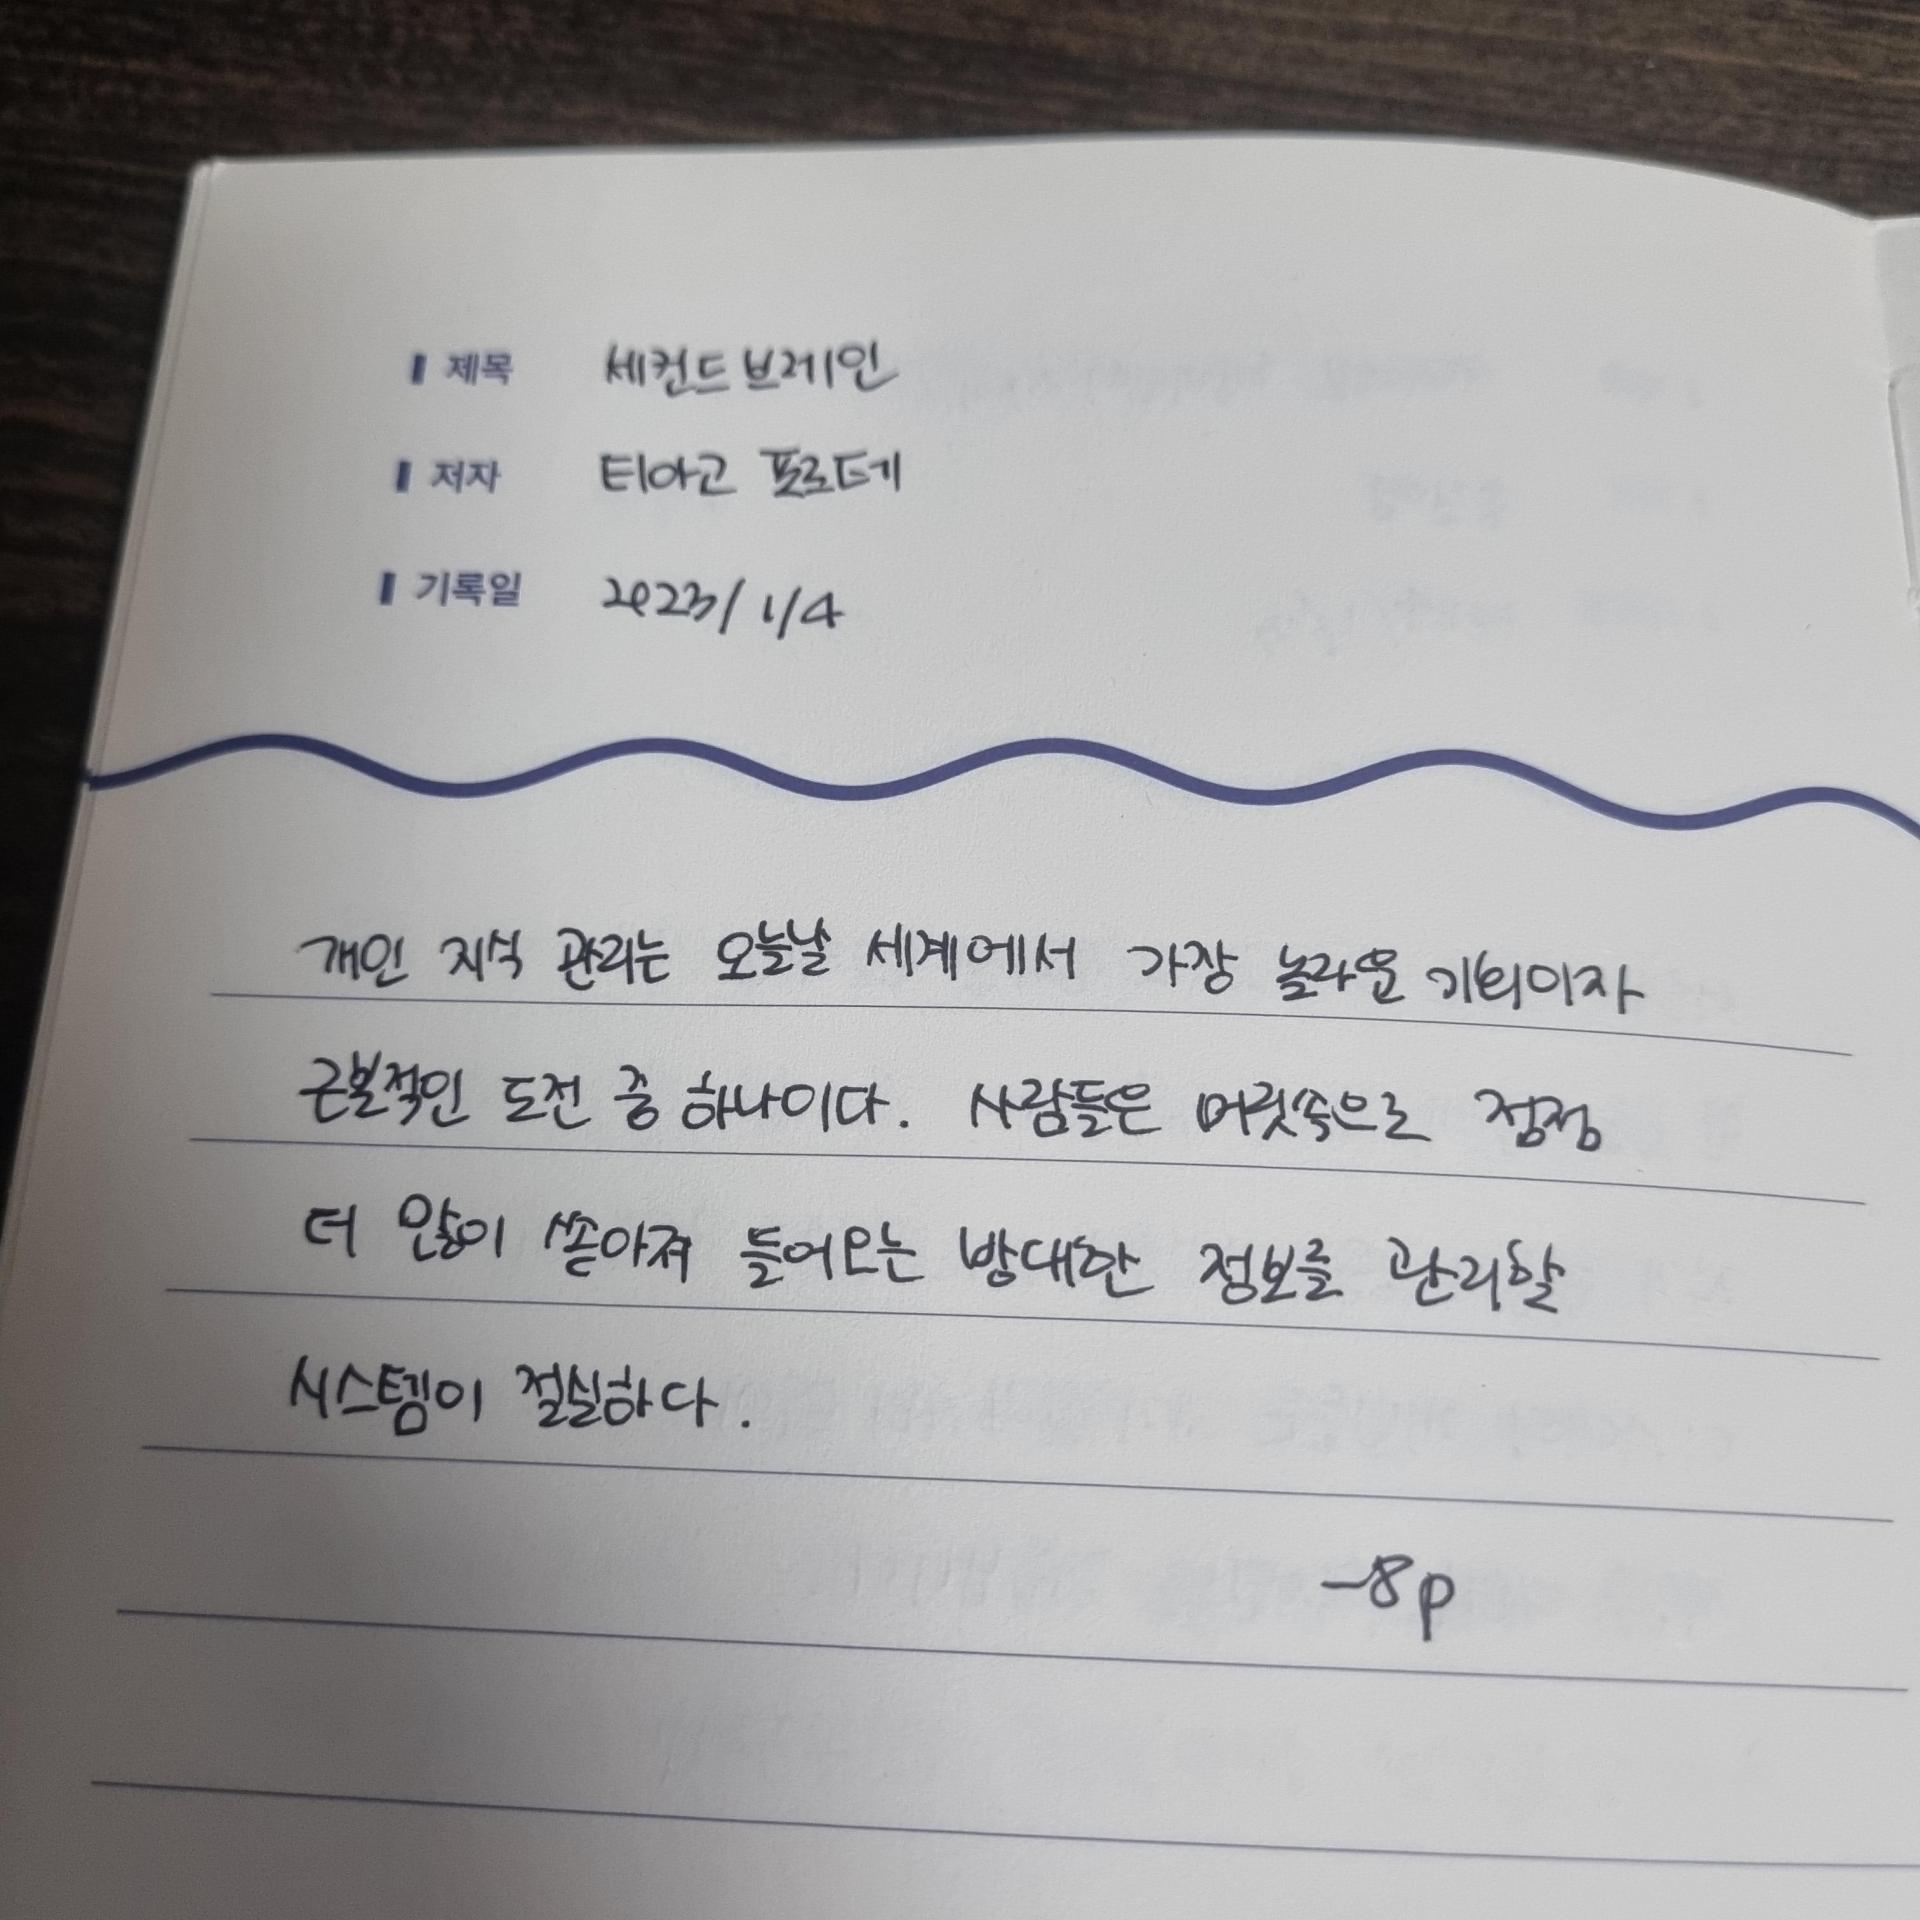 제목 세컨드브레인
저자 티아고 포르테
기록일 2023/1/4
개인 지식 관리는 오늘날 세계에서 가장 놀라운 기회이자
근본적인 도전 중 하나이다. 사람들은 머릿속으로 점점
더 많이 쏟아져 들어오는 방대한 정보를 관리할
시스템이 절실하다.
-8p